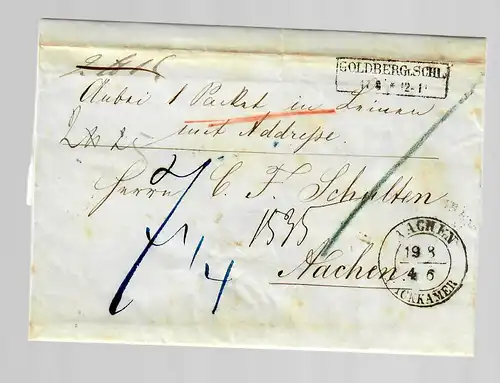 GOLDBERG i. SCHL.
17 8 * 12-1
Anbei 1 Packet in Leinen
mit Addresse.
Herrn C. F. Schulten
1535
Aachen
1/4
AACHEN
19 8
4 6
PACKKAMER